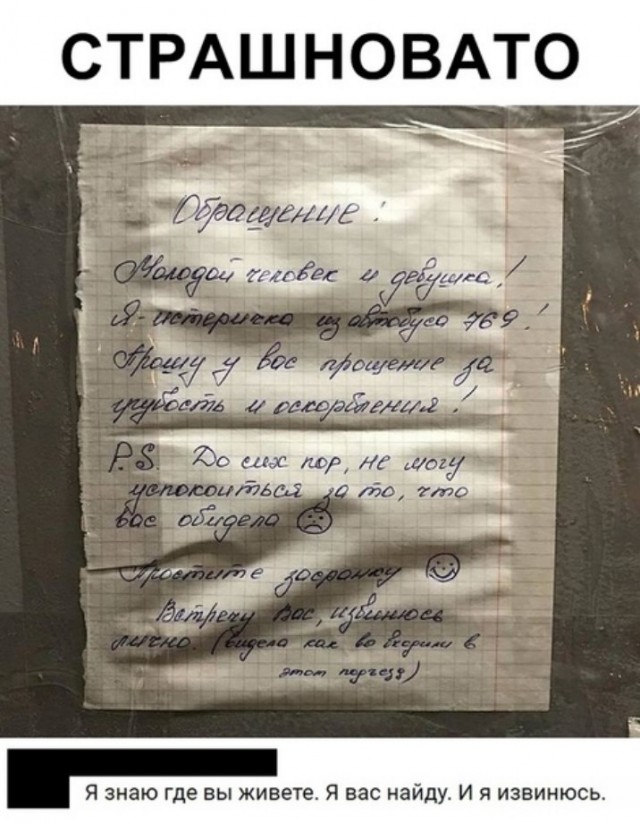 СТРАШНОВАТО
Обращение:
Молодой человек и девушка!
Я - истеричка из автобуса 769!
Прошу у вас прощение за
грубость и оскорбления!
P.S. До сих пор, не могу
успокоиться за то, что
вас обидела
Простите засранку
Встречу Вас, извинюсь
лично. (видела как вы входили в
этот подъезд)
Я знаю где вы живете. Я вас найду. И я извинюсь.